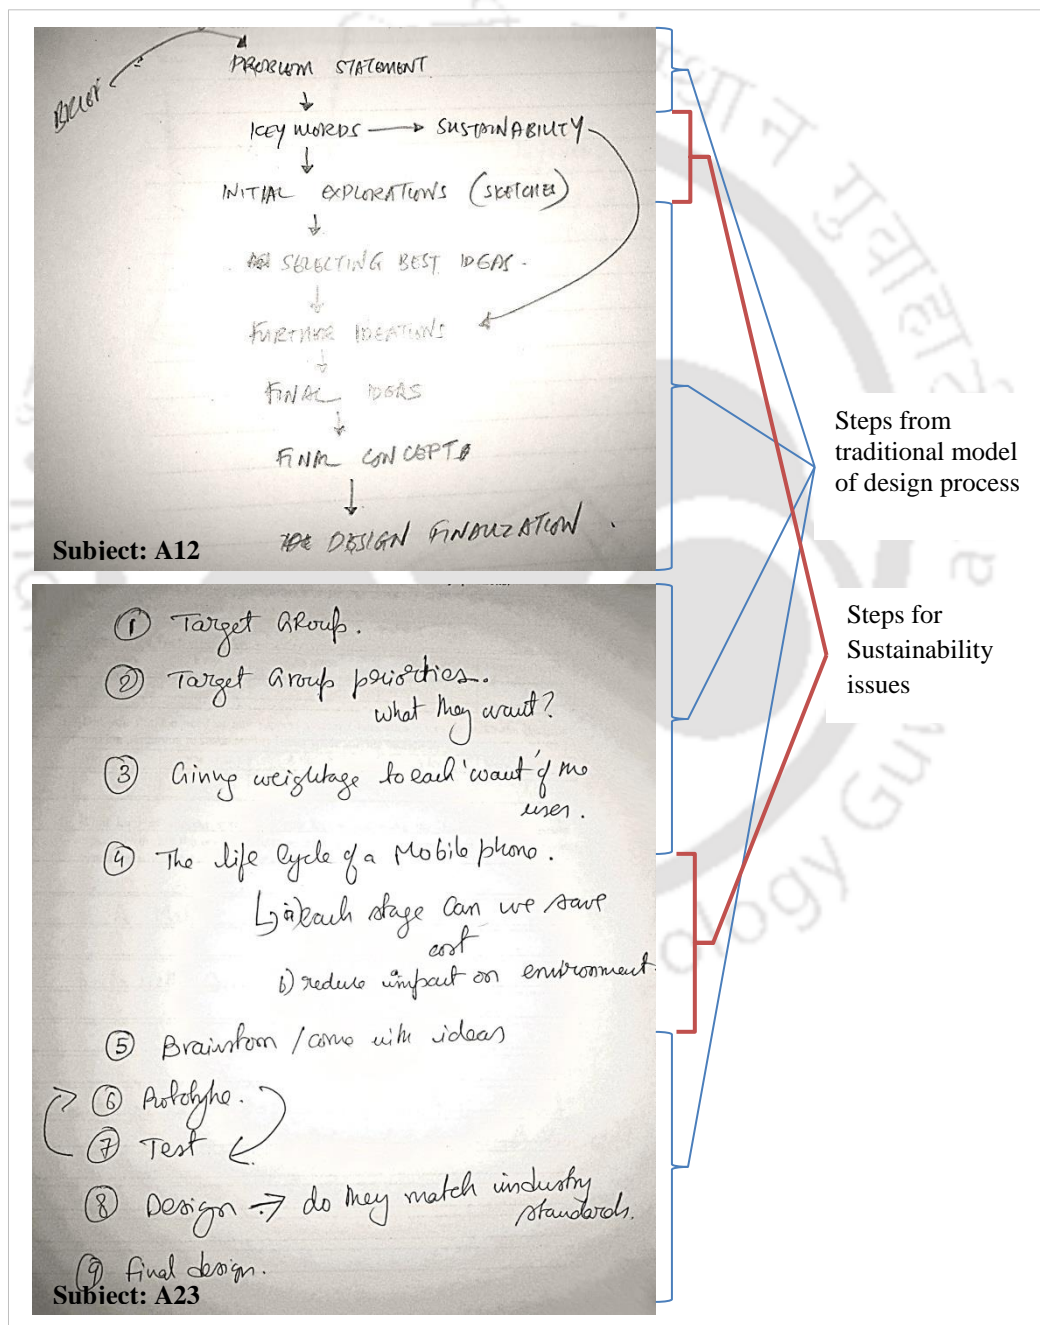 BRIEF
PROBLEM STATEMENT
KEY WORDS → SUSTAINABILITY
INITIAL EXPLORATIONS (SKETCHES)
SELECTING BEST IDEAS.
FURTHER IDEATIONS
FINAL IDEAS
FINAL CONCEPT
DESIGN FINALIZATION.
Subject: A12
① Target Group.
② Target Group priorties.
what they want?
③ Giving weightage to each 'want' of the
user.
④ The life Cycle of a Mobile phone.
a) each stage can we save
cost
b) reduce impact on environment.
⑤ Brainstorm / come with ideas
⑥ Prototype.
⑦ Test
⑧ Design → do they match industry
standards.
⑨ final design.
Subject: A23
Steps from
traditional model
of design process
Steps for
Sustainability
issues